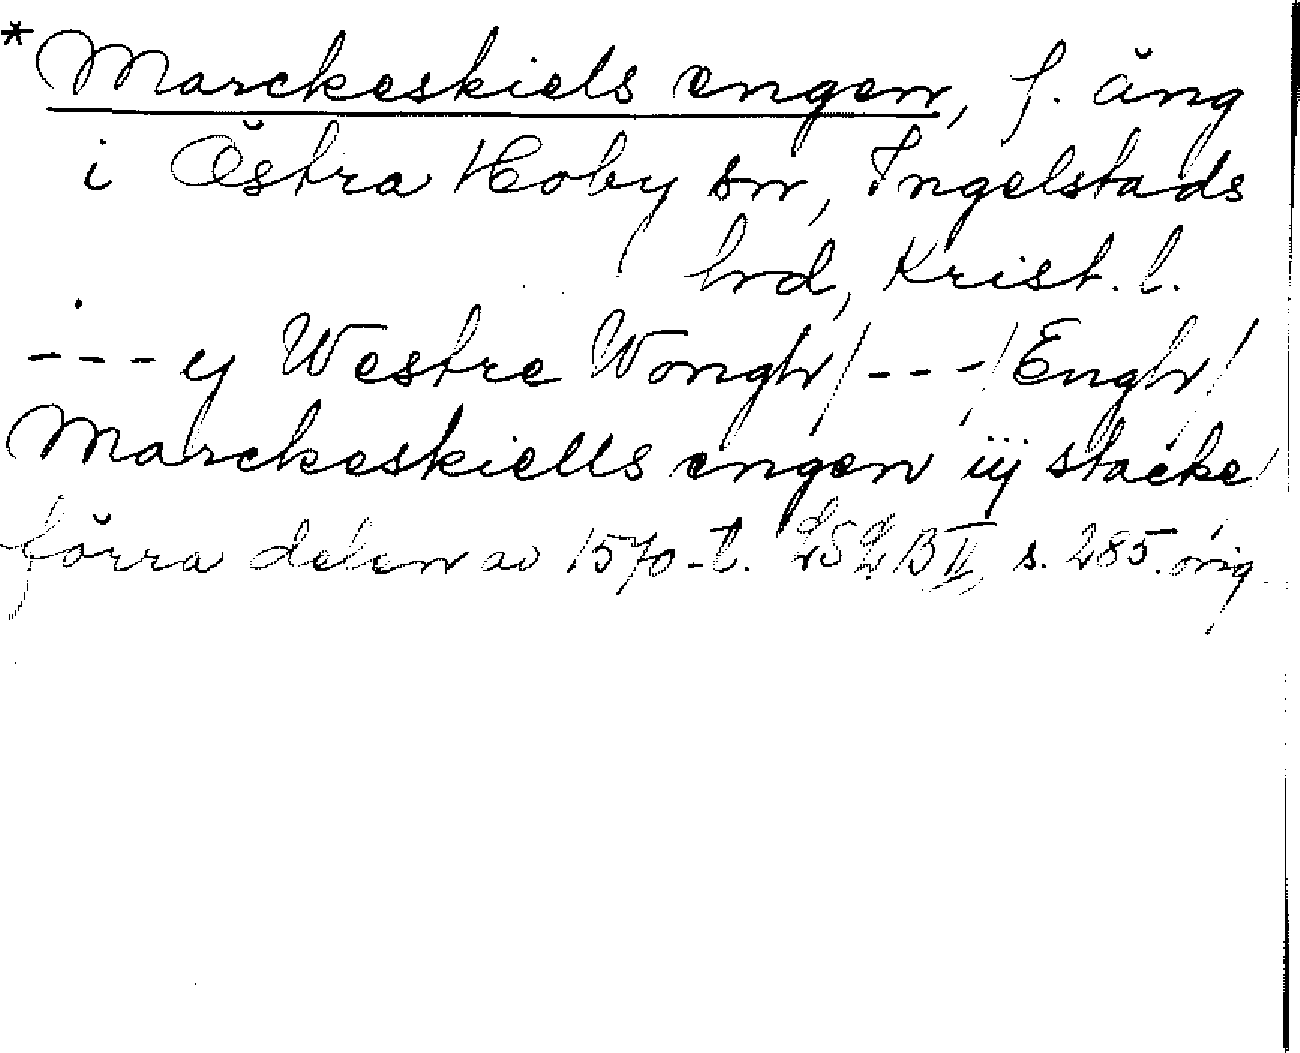 *Marckeskiels engen, f. äng
i Östra Hoby sn, Ingelstads
hrd, Krist. l.
--- y Westre Wongh/---/Engh/
Marckeskiells engen iij stacke
förra delen av 1570-t. LSLB II, s. 285. orig.